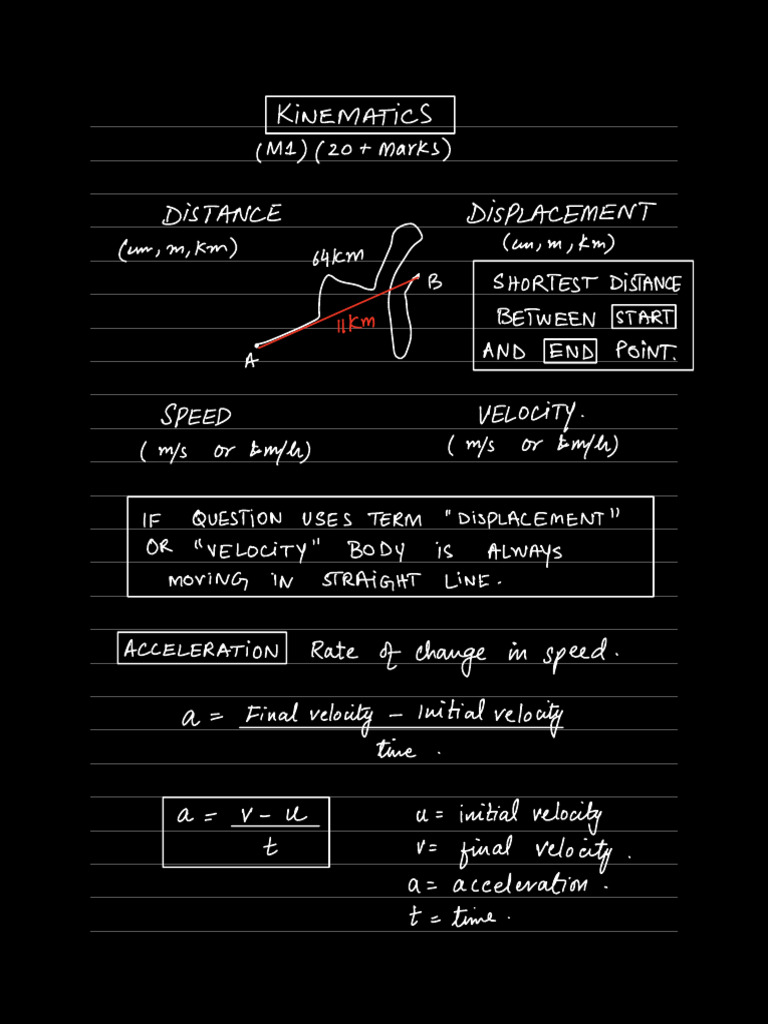 KINEMATICS
(M1) (20 + marks)
DISTANCE
DISPLACEMENT
(cm, m, km)
(cm, m, km)
64km
B
11km
A
SHORTEST DISTANCE
BETWEEN START
AND END POINT.
SPEED
VELOCITY.
(m/s or km/h)
(m/s or km/h)
IF QUESTION USES TERM "DISPLACEMENT"
OR "VELOCITY" BODY IS ALWAYS
MOVING IN STRAIGHT LINE.
ACCELERATION Rate of change in speed.
a = Final velocity - Initial velocity
time.
a = v - u
t
u = initial velocity
v = final velocity.
a = acceleration.
t = time.